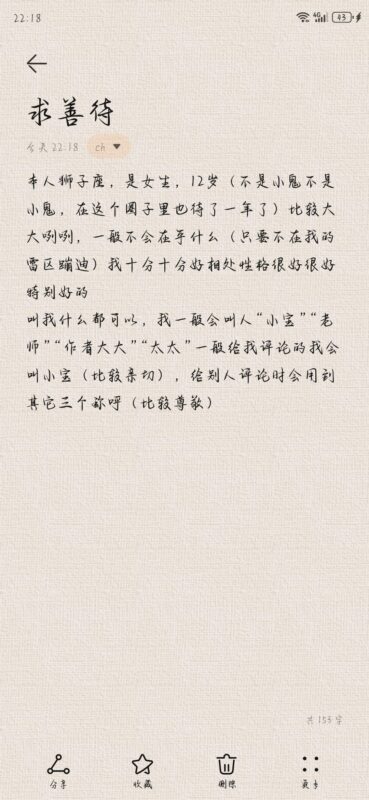 22:18
4G
43
求善待
今天 22:18
ch
本人狮子座，是女生，12岁（不是小鬼不是
小鬼，在这个圈子里也待了一年了）比较大
大咧咧，一般不会在乎什么（只要不在我的
雷区蹦迪）我十分十分好相处性格很好很好
特别好的
叫我什么都可以，我一般会叫人“小宝”“老
师”“作者大大”“太太”一般给我评论的我会
叫小宝（比较亲切），给别人评论时会用到
其它三个称呼（比较尊敬）
共 153 字
分享
收藏
删除
更多